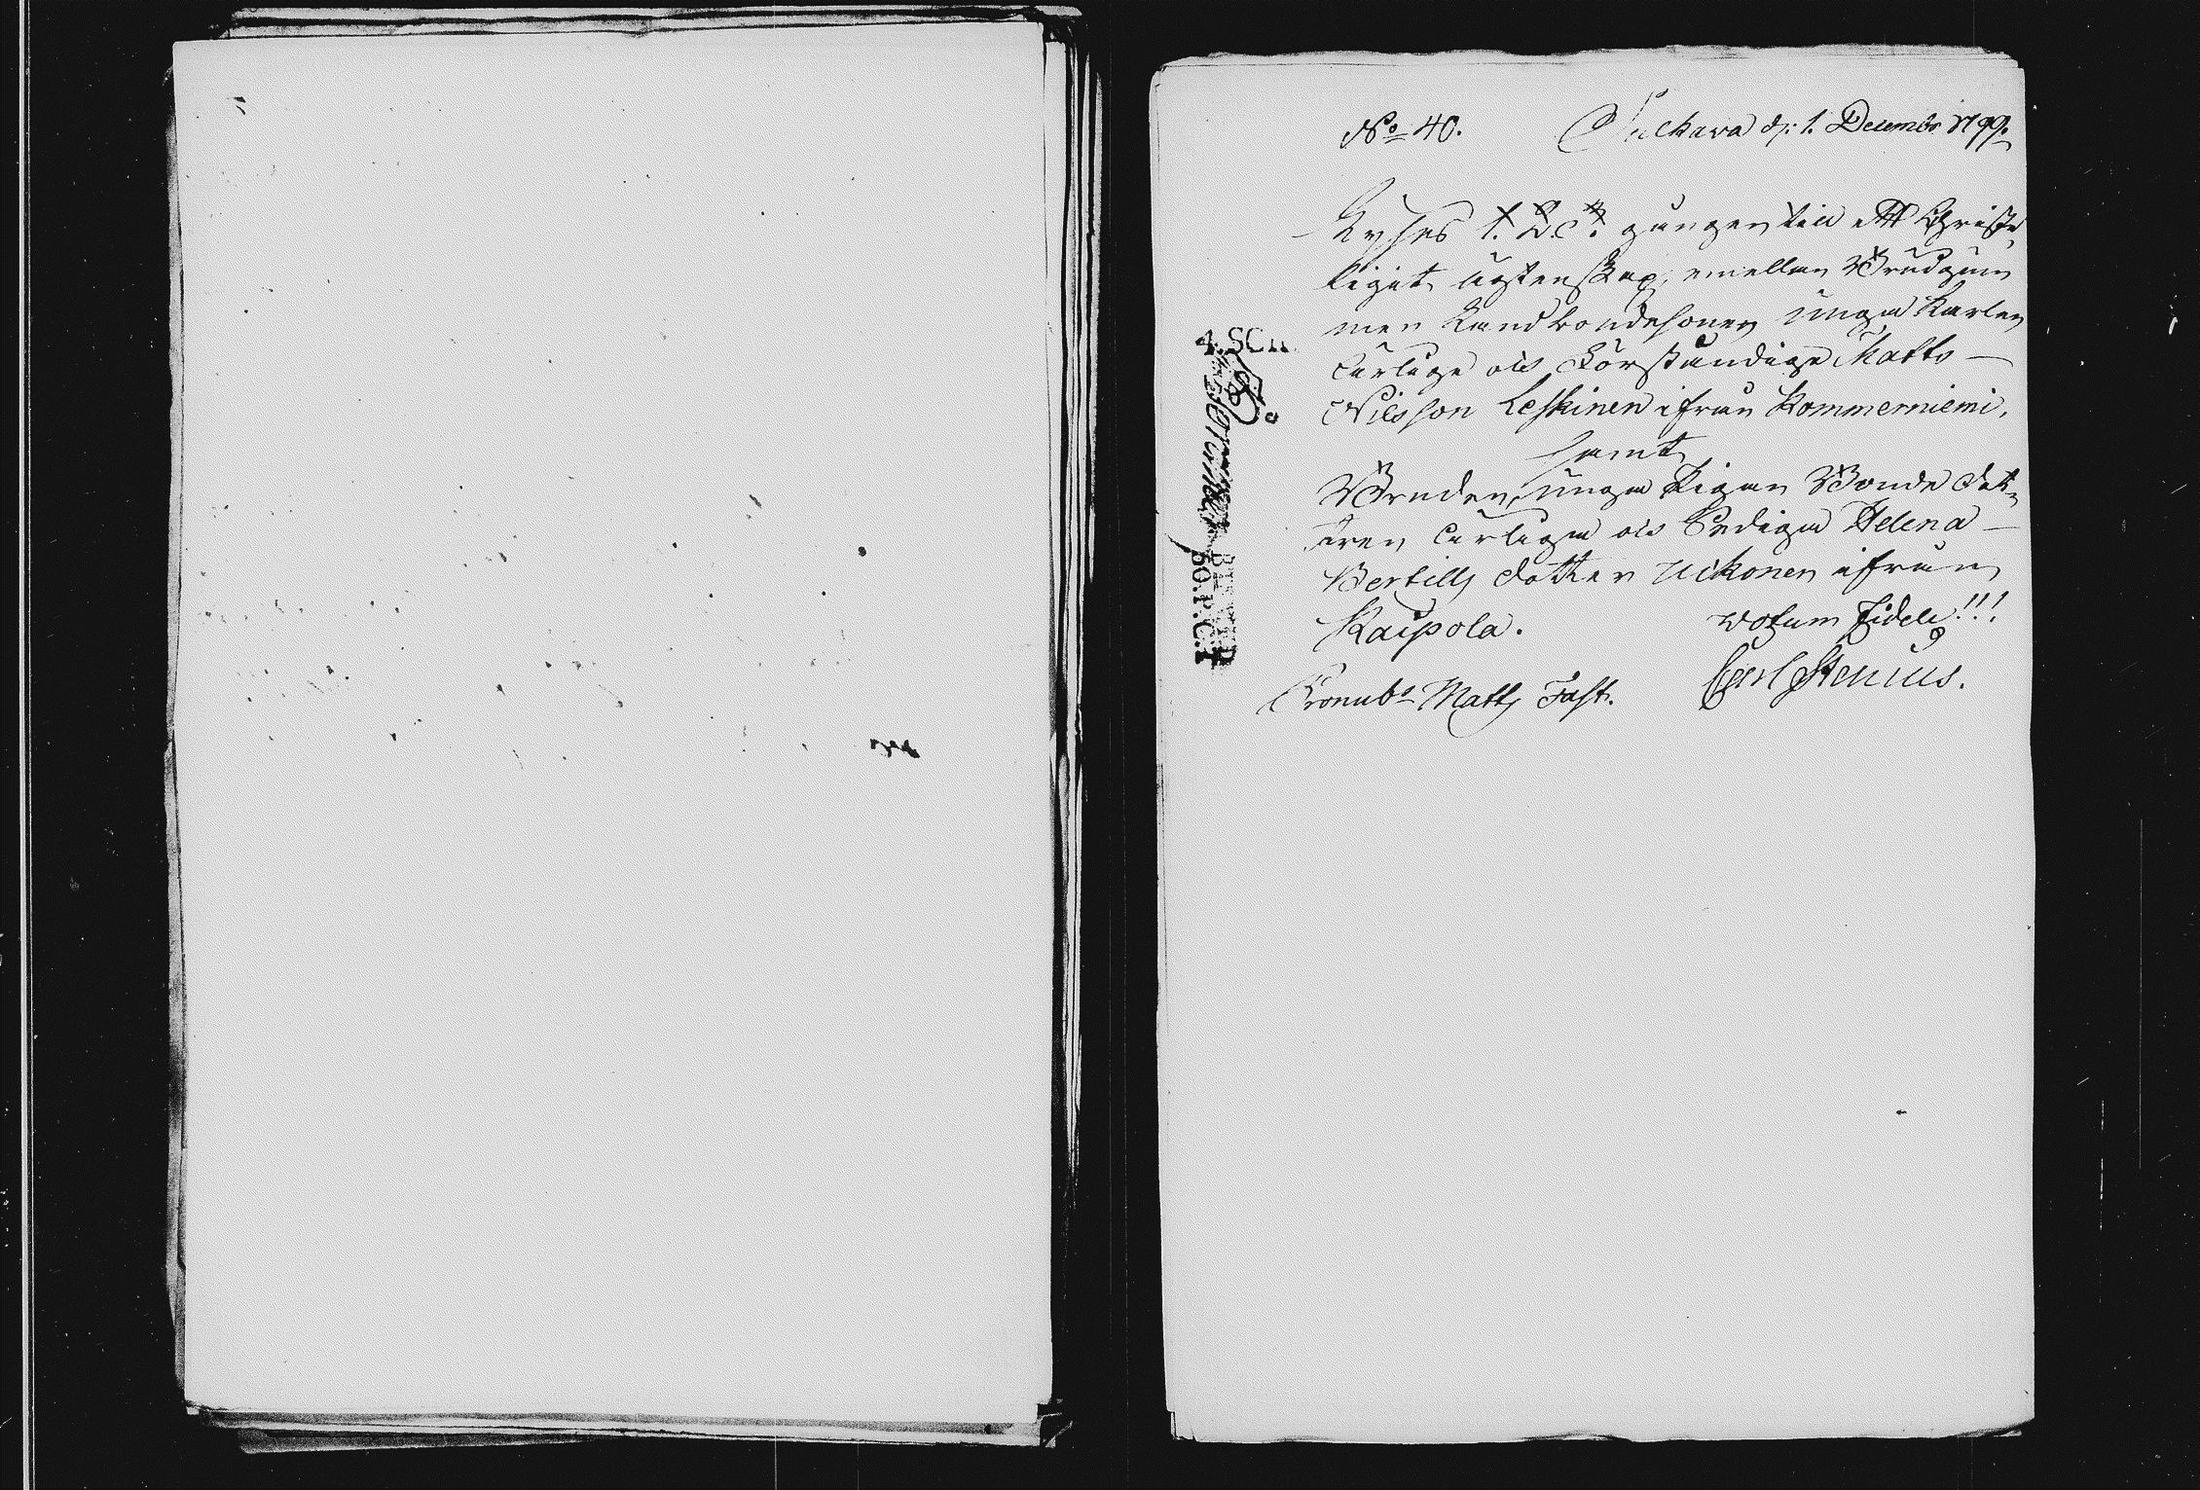 No 40. Puckawa d: 1. Decembr 1799.
Lyses 1. 2. 3. gången till ett Christe,
ligit ägtenskap, emellan Brudgum
men Landbondesonen unga Karlen
ärlige och Förståndige Matts —
Nilsson Leskinen ifrån Kommerniemi,
samt
Bruden, unga Pigan Bonde dot,
tren ärliga och Sediga Helena —
Bertills dotter Uckonen ifrån
Kaipola. votum Fidele!!!
Carl Stenius.
Cronub. Matts Fast.
4. SCH
BEVILLN
50.P.C.T